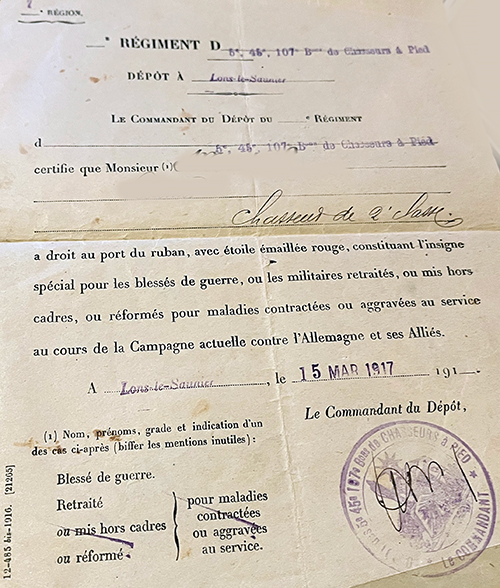 RÉGION.
RÉGIMENT D 5ᵉ, 45ᵉ, 107ᵉ Bᵒⁿˢ de Chasseurs à Pied
DÉPÔT À Lons-le-Saunier
LE COMMANDANT DU DÉPÔT DU ᵉ RÉGIMENT
d 5ᵉ, 45ᵉ, 107ᵉ Bᵒⁿˢ de Chasseurs à Pied
certifie que Monsieur (1)
Chasseur de 2ᵉ classe.
a droit au port du ruban, avec étoile émaillée rouge, constituant l'insigne
spécial pour les blessés de guerre, ou les militaires retraités, ou mis hors
cadres, ou réformés pour maladies contractées ou aggravées au service
au cours de la Campagne actuelle contre l'Allemagne et ses Alliés.
A Lons-le-Saunier, le 15 MAR 1917 191
Le Commandant du Dépôt,
(1) Nom, prénoms, grade et indication d'un
des cas ci-après (biffer les mentions inutiles) :
Blessé de guerre.
Retraité
ou mis hors cadres
ou réformé
pour maladies
contractées
ou aggravées
au service.
12-485 bis-1916. [21265]
45ᵉ 107ᵉ Bᵒⁿˢ de CHASSEURS à PIED
Le COMMANDANT